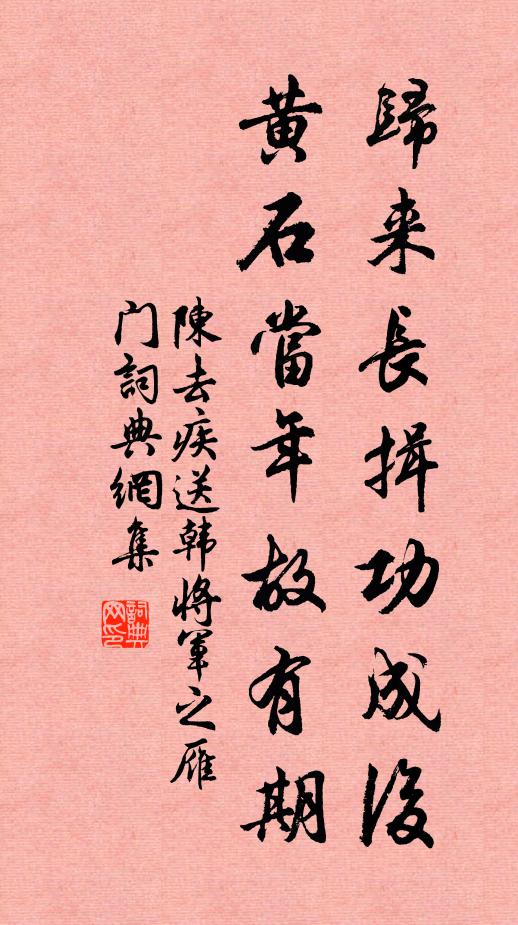 歸来長揖功成後
黄石當年故有期
陳去疾送韩將軍之雁
门詞典網集
詞典网印